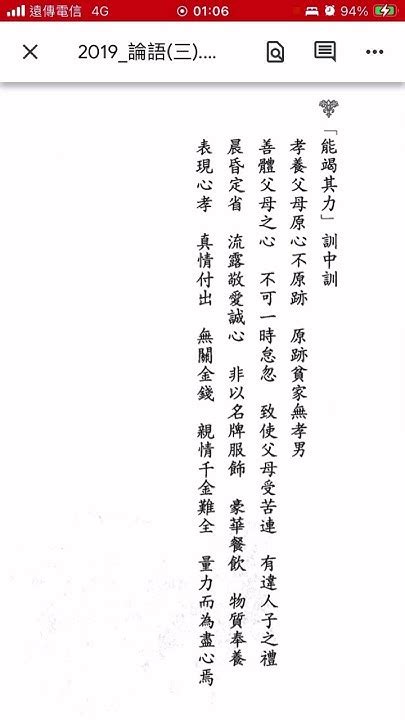 遠傳電信 4G 01:06 94%
2019_論語(三)....
「能竭其力」訓中訓
孝養父母原心不原跡 原跡貧家無孝男
善體父母之心 不可一時怠忽 致使父母受苦連 有違人子之禮
晨昏定省 流露敬愛誠心 非以名牌服飾 豪華餐飲 物質奉養
表現心孝 真情付出 無關金錢 親情千金難全 量力而為盡心焉